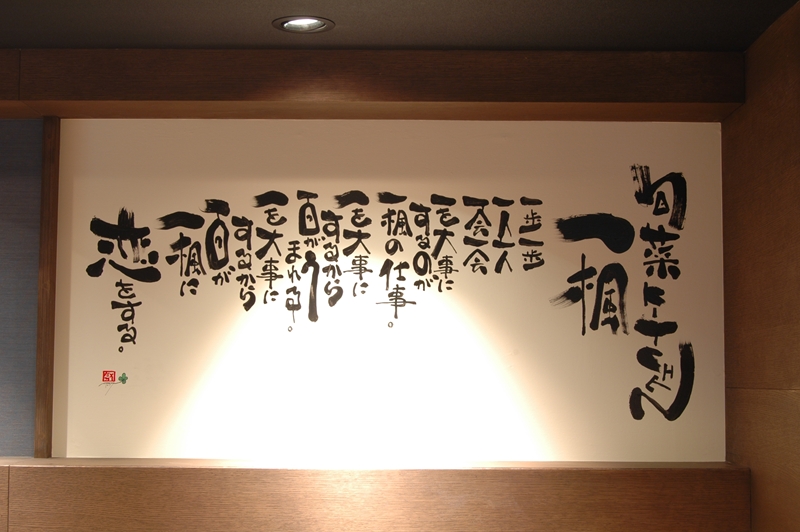 旬菜
一楓
一歩一歩
一人一人
一会一会
一を大事に
するのが
一楓の仕事。
一を大事に
するから
百がうまれる。
一を大事に
するから
百が
一楓に
恋をする。